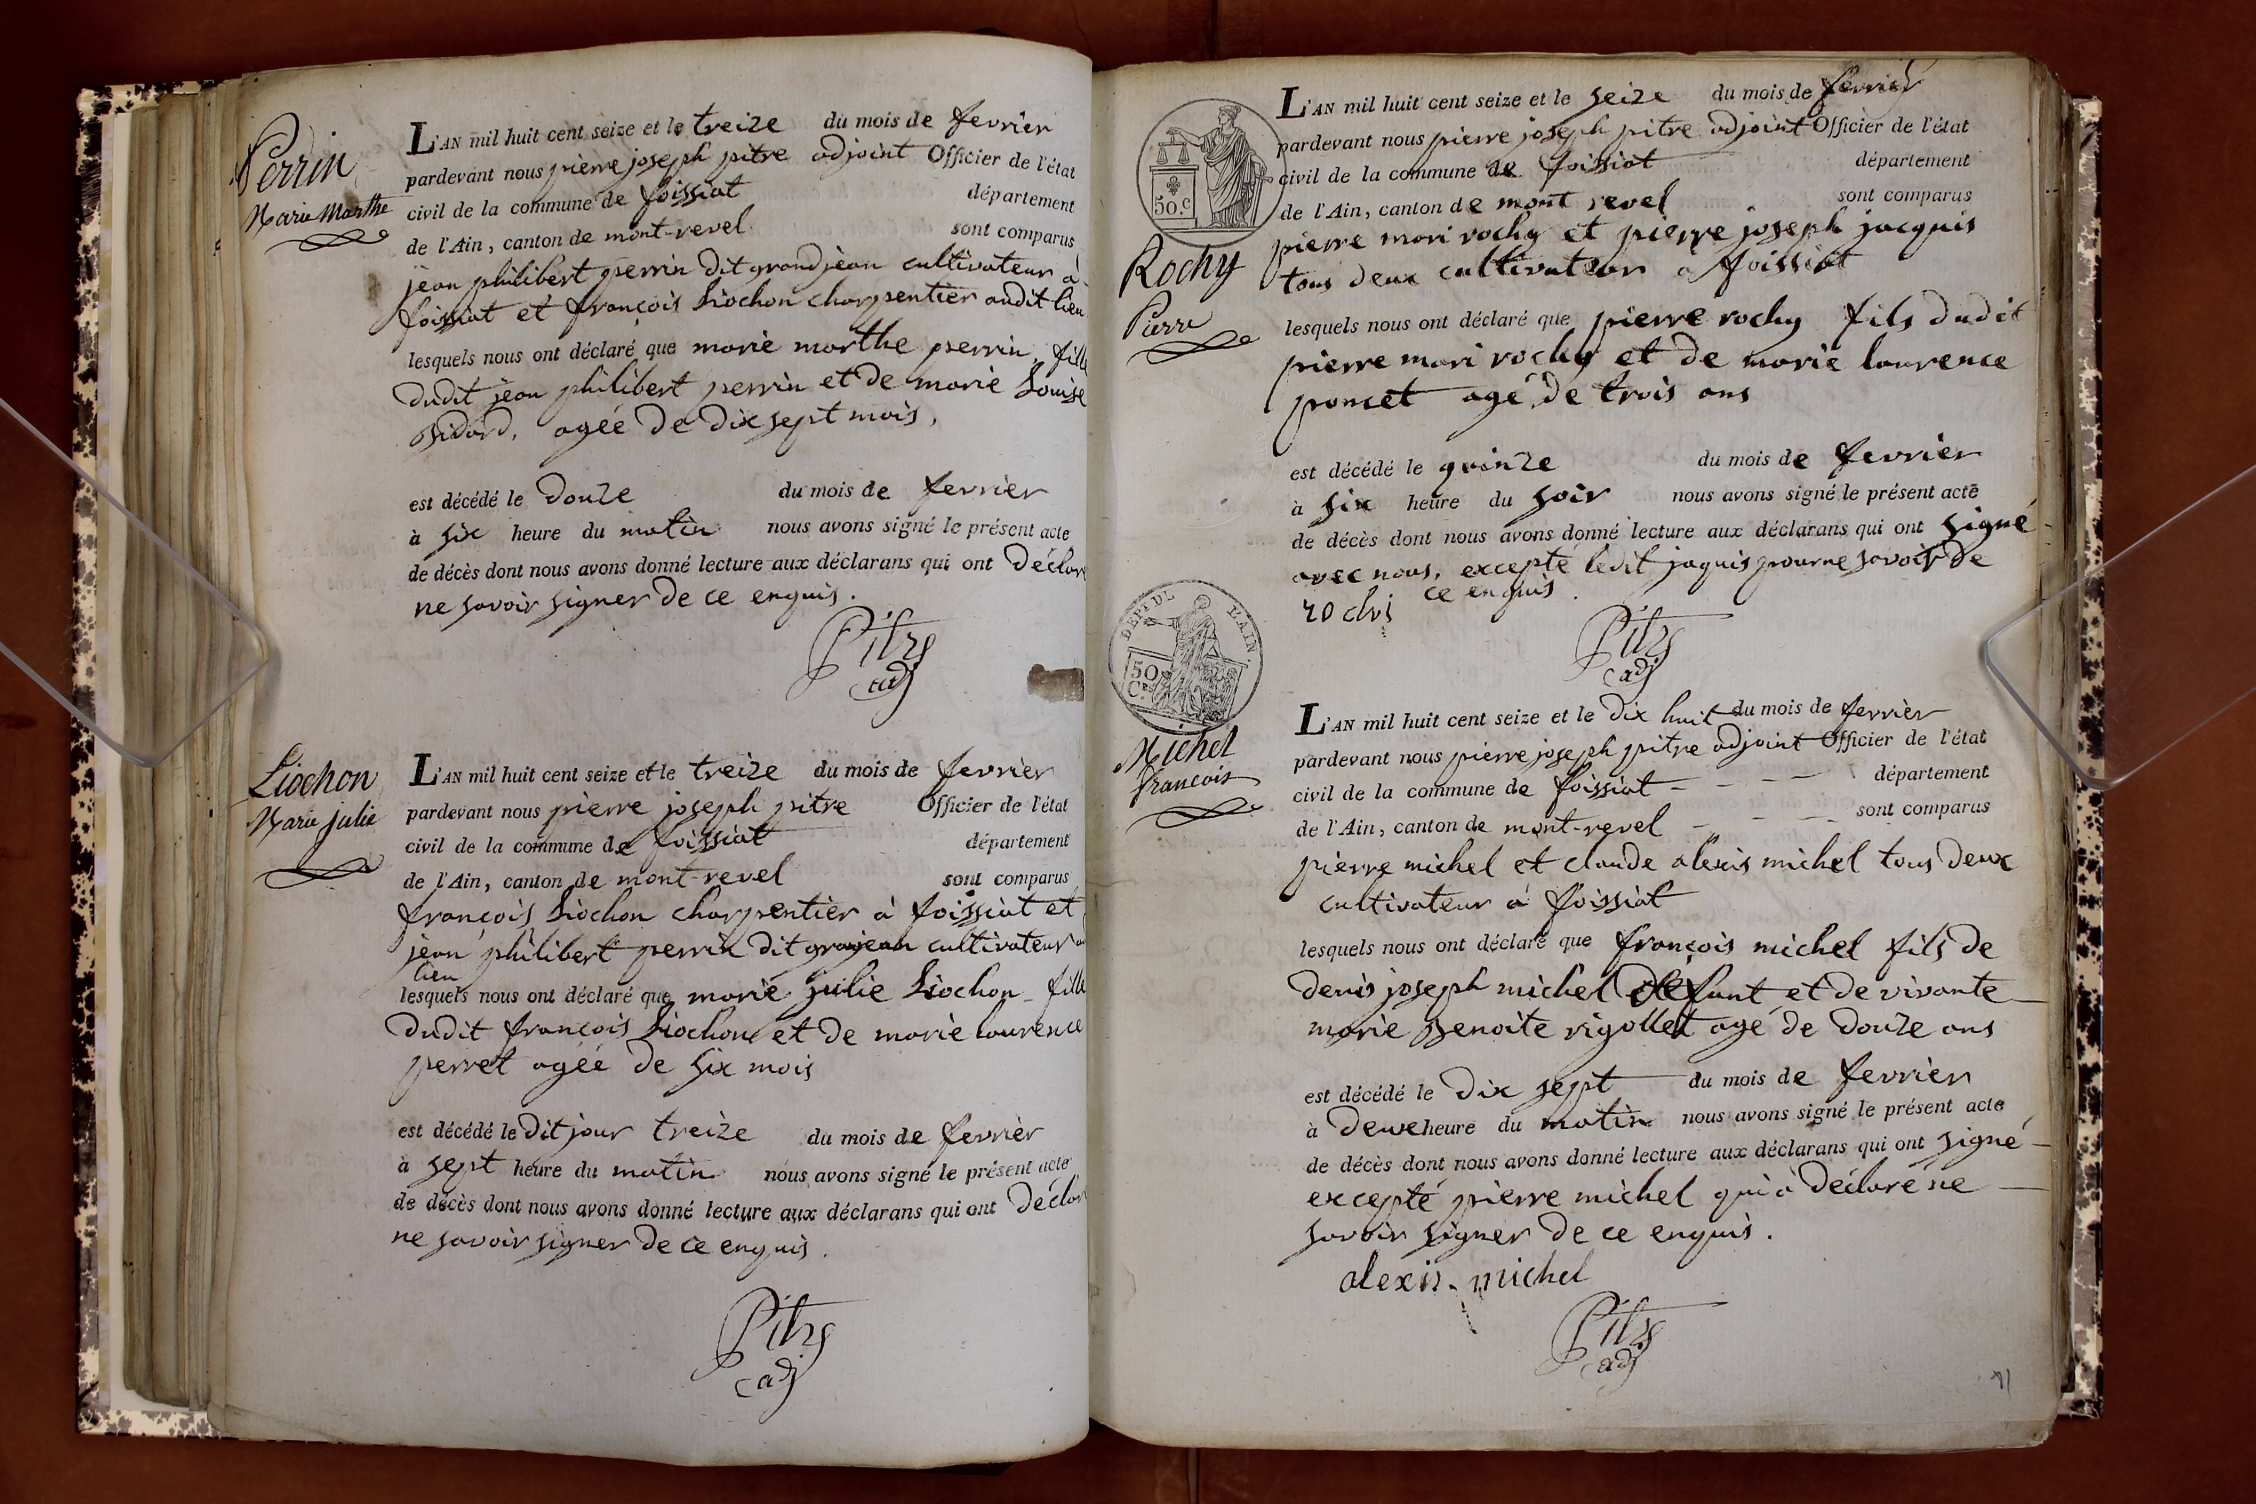 Perrin
Marie Marthe
L'AN mil huit cent seize et le treize du mois de fevrier
pardevant nous pierre joseph pitre adjoint Officier de l'état
civil de la commune de foissiat département
de l'Ain, canton de mont-revel sont comparus
jean philibert perrin dit grandjean cultivateur à
foissiat et françois Liochon charpentier audit lieu
lesquels nous ont déclaré que marie marthe perrin, fille
dudit jean philibert perrin et de marie Louise
agée de dix sept mois,
est décédé le douze du mois de fevrier
à six heure du matin nous avons signé le présent acte
de décès dont nous avons donné lecture aux déclarans qui ont déclaré
ne savoir signer de ce enquis.
Pitre
adj
Liochon
Marie julie
L'AN mil huit cent seize et le treize du mois de fevrier
pardevant nous pierre joseph pitre Officier de l'état
civil de la commune de foissiat département
de l'Ain, canton de mont-revel sont comparus
françois Liochon charpentier à foissiat et
jean philibert perrin dit granjean cultivateur au
lieu
lesquels nous ont déclaré que marie julie Liochon fille
dudit françois Liochon et de marie laurence
perret agée de six mois
est décédé le dit jour treize du mois de fevrier
à sept heure du matin nous avons signé le présent acte
de décès dont nous avons donné lecture aux déclarans qui ont déclar
ne savoir signer de ce enquis.
Pitre
adj
50.c
Rochy
Pierre
L'AN mil huit cent seize et le seize du mois de fevrier
pardevant nous pierre joseph pitre adjoint Officier de l'état
civil de la commune de foissiat département
de l'Ain, canton de mont revel sont comparus
pierre mari rochy et pierre joseph jacquis
tous deux cultivateur à foissiat
lesquels nous ont déclaré que pierre rochy fils dudit
pierre mari rochy et de marie laurence
poncet agé de trois ans
est décédé le quinze du mois de fevrier
à six heure du soir nous avons signé le présent acte
de décès dont nous avons donné lecture aux déclarans qui ont signé
avec nous, excepté ledit jaquis pour ne savoir de
ce enquis.
rochi
Pitre
adj
DEP. DE L'AIN.
50
Cs
Michel
francois
L'AN mil huit cent seize et le dix huit du mois de fevrier
pardevant nous pierre joseph pitre adjoint Officier de l'état
civil de la commune de foissiat département
de l'Ain, canton de mont-revel sont comparus
pierre michel et claude alexis michel tous deux
cultivateur à foissiat
lesquels nous ont déclaré que françois michel fils de
denis joseph michel defunt et de vivante
marie benoite rigollet agé de douze ans
est décédé le dix sept du mois de fevrier
à deux heure du matin nous avons signé le présent acte
de décès dont nous avons donné lecture aux déclarans qui ont signé
excepté pierre michel qui à déclaré ne
savoir signer de ce enquis.
alexis michel
Pitre
adj